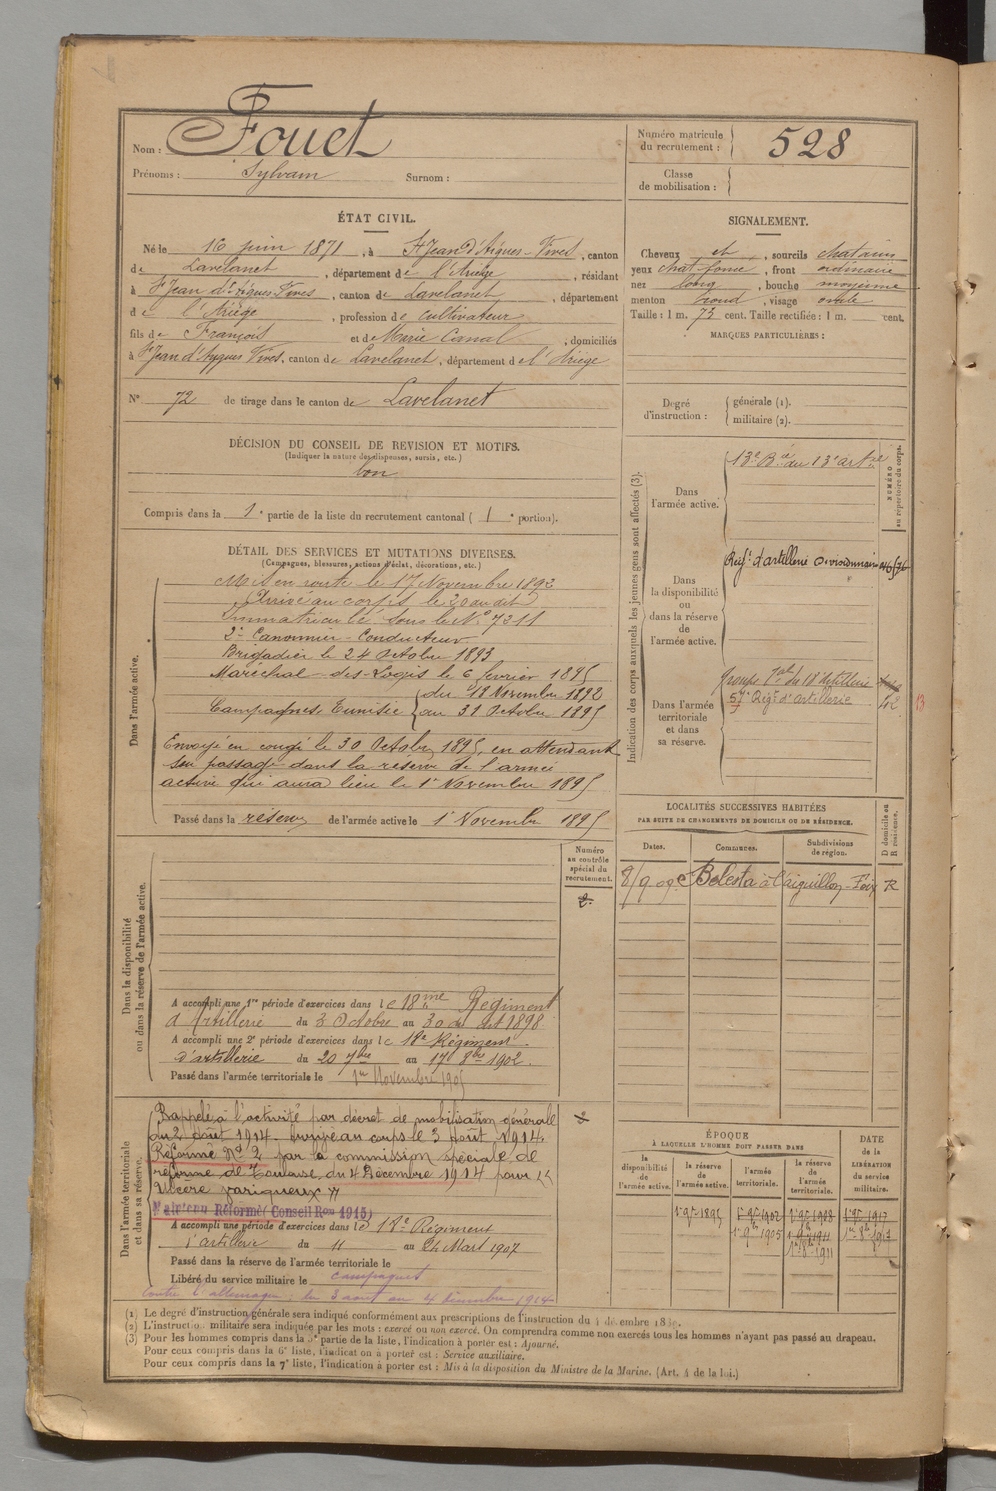 Nom : Fouet
Prénoms : Sylvain Surnom :
Numéro matricule du recrutement : 528
Classe de mobilisation :
ÉTAT CIVIL.
Né le 16 juin 1871, à St Jean d'Aigues-Vives, canton
de Lavelanet, département de l'Ariège, résidant
à St Jean d'Aigues Vives, canton de Lavelanet, département
de l'Ariège, profession de cultivateur
fils de François et de Marie Canal, domiciliés
à St Jean d'Aygues Vives, canton de Lavelanet, département de l'Ariège
N° 72 de tirage dans le canton de Lavelanet
SIGNALEMENT.
Cheveux et, sourcils chatains
yeux chat. foncé, front ordinaire
nez long, bouche moyenne
menton rond, visage ovale
Taille : 1 m. 73 cent. Taille rectifiée : 1 m. cent.
MARQUES PARTICULIÈRES :
Degré d'instruction : générale (1).
militaire (2).
DÉCISION DU CONSEIL DE REVISION ET MOTIFS.
(Indiquer la nature des dispenses, sursis, etc.)
bon
Compris dans la 1e partie de la liste du recrutement cantonal ( 1e portion).
DÉTAIL DES SERVICES ET MUTATIONS DIVERSES.
(Campagnes, blessures, actions d'éclat, décorations, etc.)
Dans l'armée active.
Mis en route le 17 Novembre 1892
Arrivé au corps le 20 au dit
Immatriculé sous le N° 7311
2e Canonnier-Conducteur
Brigadier le 24 Octobre 1893
Maréchal-des-Logis le 6 février 1895
Campagnes Tunisie { du 18 Novembre 1892
au 31 Octobre 1895
Envoyé en congé le 30 Octobre 1895, en attendant
son passage dans la réserve de l'armée
active qui aura lieu le 1er Novembre 1895
Passé dans la réserve de l'armée active le 1er Novembre 1895
Indication des corps auxquels les jeunes gens sont affectés (3).
NUMÉRO au répertoire du corps.
Dans l'armée active.
13e Bie du 13e artie
Dans la disponibilité ou dans la réserve de l'armée active.
Régt d'artillerie Divisionnaire
Dans l'armée territoriale et dans sa réserve.
Groupe Tal du 18 d'artillerie
57e Régt d'artillerie
13
LOCALITÉS SUCCESSIVES HABITÉES
PAR SUITE DE CHANGEMENTS DE DOMICILE OU DE RÉSIDENCE.
Dates. Communes. Subdivisions de région. D domicile ou R résidence.
8/9 09 Belesta à l'aiguillon - Foix R
Dans la disponibilité ou dans la réserve de l'armée active.
Numéro au contrôle spécial du recrutement.
A accompli une 1re période d'exercices dans le 18me Régiment
d'Artillerie du 3 Octobre au 30 du dit 1898
A accompli une 2e période d'exercices dans le 18e Régiment
d'artillerie du 20 7bre au 17 8bre 1902.
Passé dans l'armée territoriale le 1er Novembre 1905
Dans l'armée territoriale et dans sa réserve.
Rappelé à l'activité par décret de mobilisation générale
du 2 août 1914. Arrivé au corps le 3 août 1914.
Réformé N° 2 par la commission spéciale de
réforme de Toulouse du 4 Décembre 1914 pour <<
Ulcère variqueux >>
Maintenu Réformé (Conseil Ron 1915)
A accompli une période d'exercices dans le 18e Régiment
d'artillerie du 11 au 24 Mars 1907
Passé dans la réserve de l'armée territoriale le
Libéré du service militaire le
campagnes
contre l'allemagne : du 3 aout au 4 décembre 1914
ÉPOQUE
À LAQUELLE L'HOMME DOIT PASSER DANS
la disponibilité de l'armée active. la réserve de l'armée active. l'armée territoriale. la réserve de l'armée territoriale.
DATE de la LIBÉRATION du service militaire.
1er 9bre 1895 1er 9bre 1902 1er 9bre 1908 1er 9bre 1917
1er 9bre 1905 1er 9bre 1911 1er 8bre 1917
1er 8bre 1911
(1) Le degré d'instruction générale sera indiqué conformément aux prescriptions de l'instruction du
(2) L'instruction militaire sera indiquée par les mots : exercé ou non exercé. On comprendra comme non exercés tous les hommes n'ayant pas passé au drapeau.
(3) Pour les hommes compris dans la 5e partie de la liste, l'indication à porter est : Ajourné.
Pour ceux compris dans la 6e liste, l'indication à porter est : Service auxiliaire.
Pour ceux compris dans la 7e liste, l'indication à porter est : Mis à la disposition du Ministre de la Marine. (Art. 4 de la loi.)